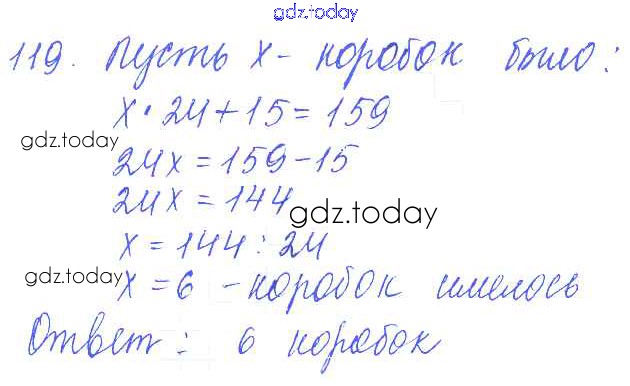 gdz.today
119. Пусть x - коробок было:
x · 24 + 15 = 159
gdz.today
24x = 159 - 15
24x = 144
gdz.today
x = 144 : 24
gdz.today
x = 6 - коробок имелось
Ответ: 6 коробок